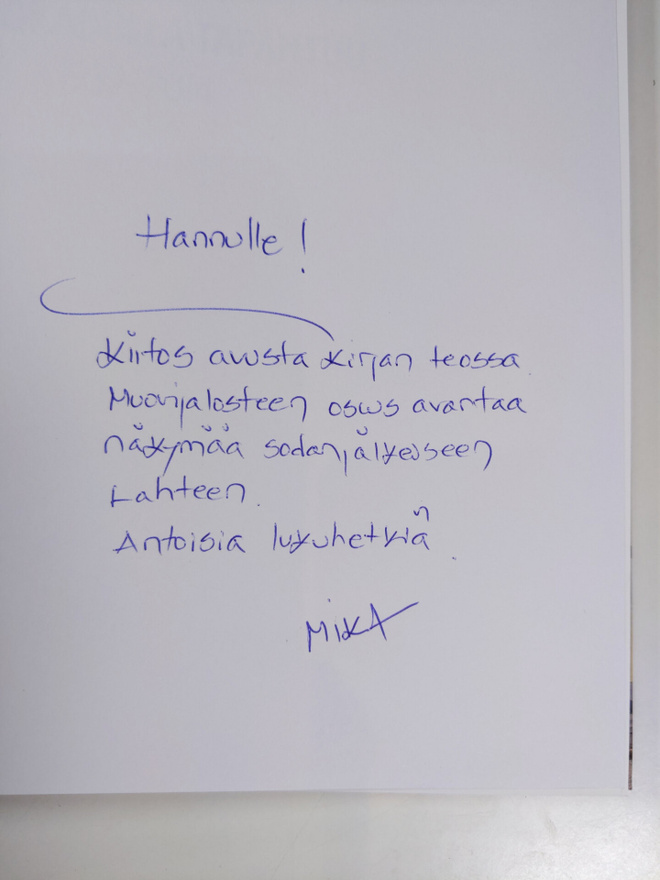 Hannulle!
Kiitos avusta kirjan teossa.
Muovijalosteen osuus avartaa
näkymää sodanjälkeiseen
Lahteen.
Antoisia lukuhetkiä.
MIKA